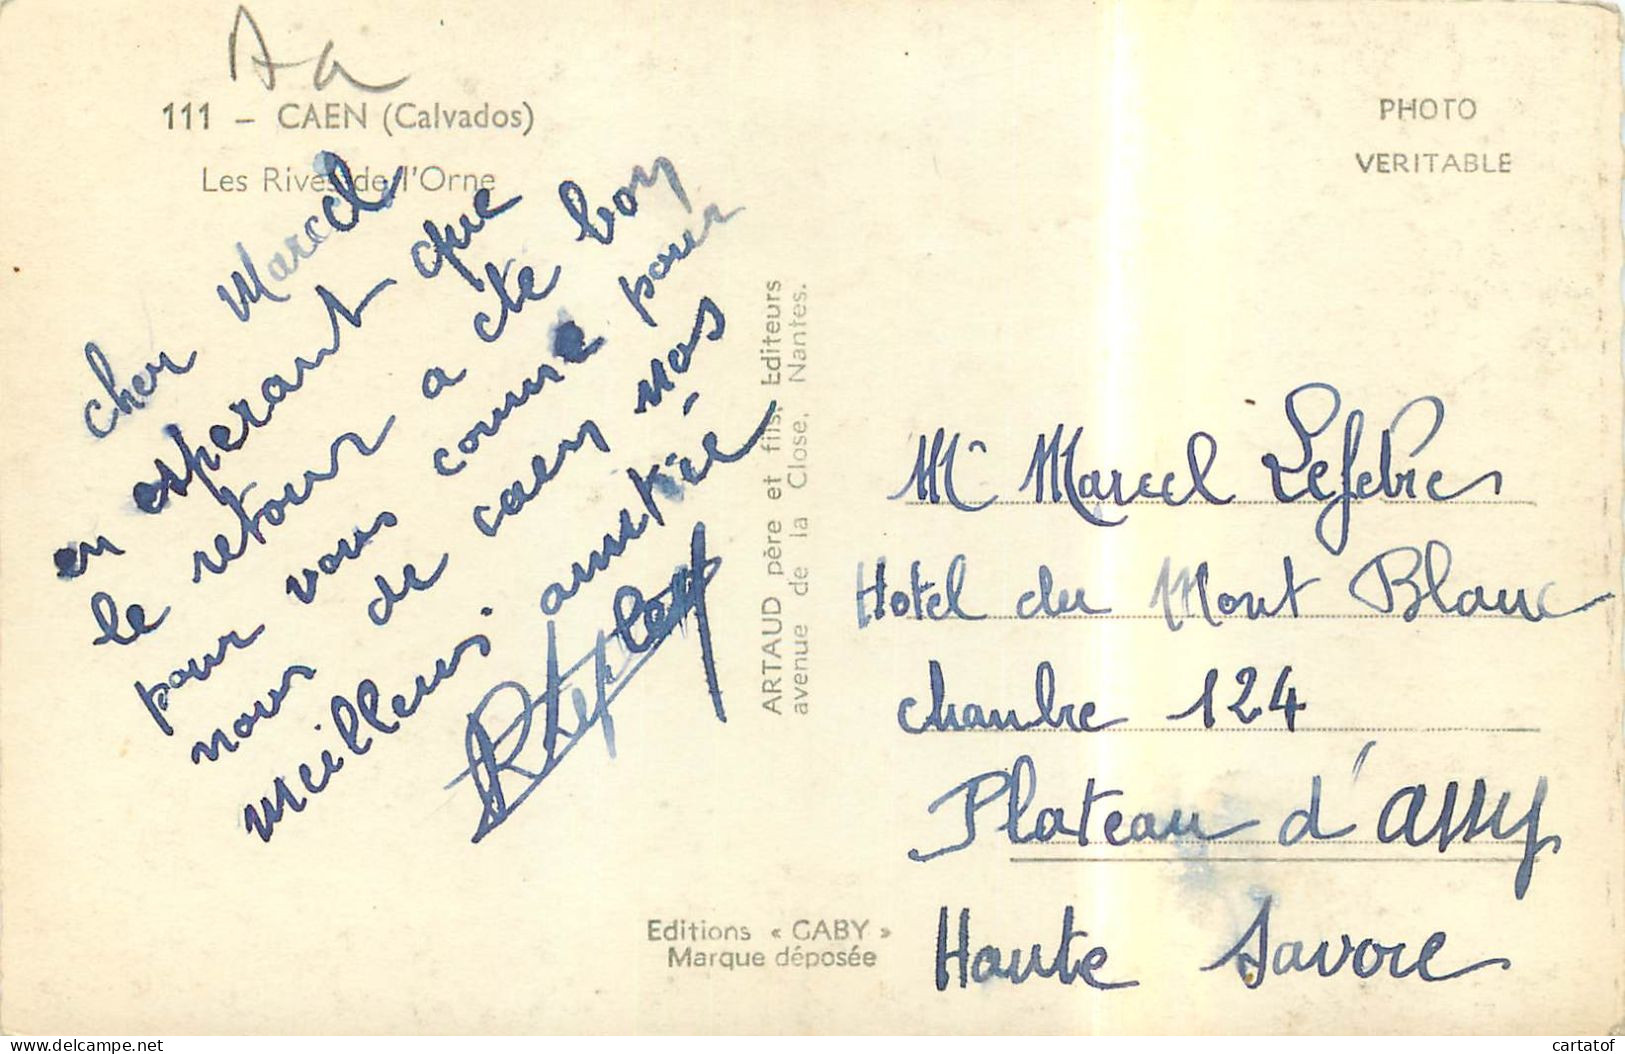 111 – CAEN (Calvados)
Les Rives de l'Orne
cher Marcel
en esperant que
le retour a ete bon
pour vous comme pour
nous de caen nos
meilleurs amitié
ARTAUD père et fils, Editeurs
avenue de la Close, Nantes.
Editions « GABY »
Marque déposée
PHOTO
VERITABLE
Mr Marcel Lefebre
Hotel du Mont Blanc
chambre 124
Plateau d'assy
Haute Savoie
cartatof